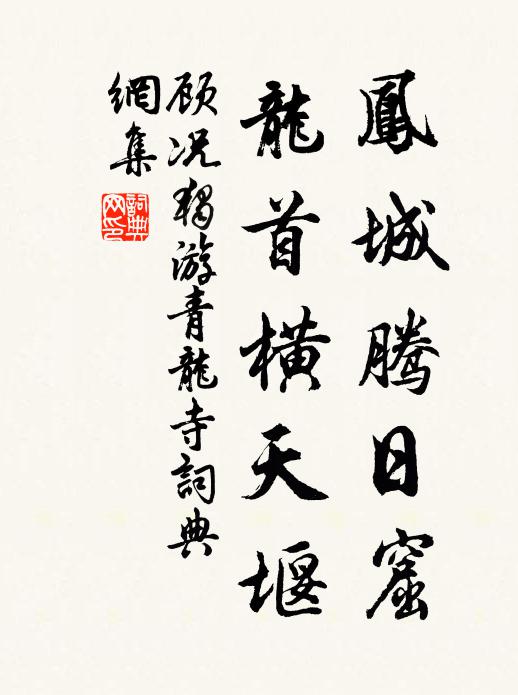 鳳城騰日窟
龍首橫天堰
顾况獨游青龍寺詞典
網集
詞典
网印